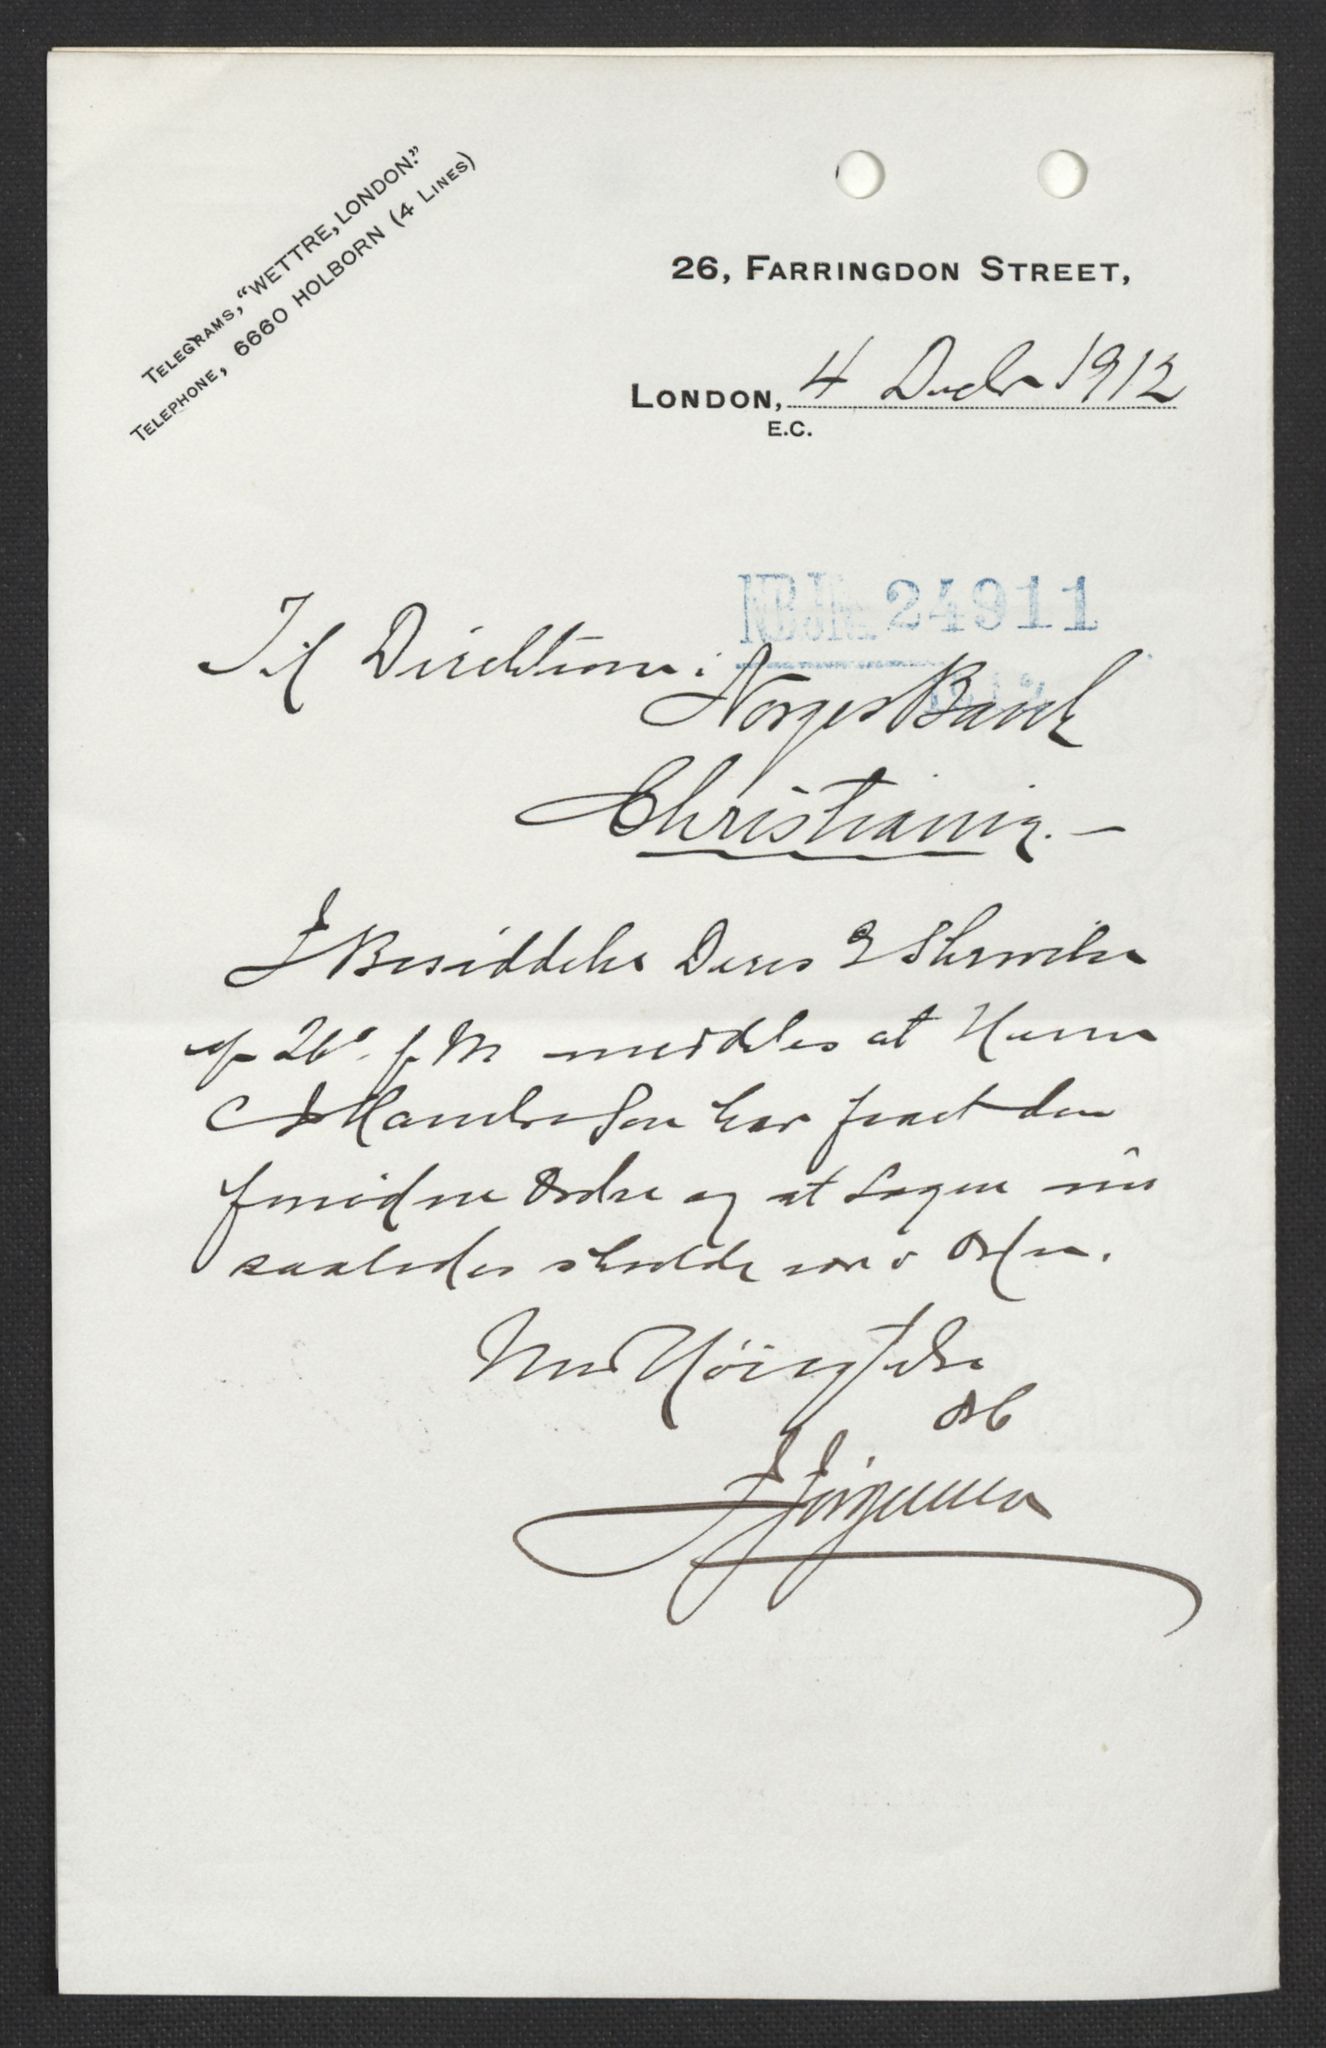 TELEGRAMS, "WETTRE, LONDON."
TELEPHONE, 6660 HOLBORN (4 LINES)
26, FARRINGDON STREET,
LONDON, 4 Decbr 1912
E.C.
24911
1912
Til Direktionen i
Norges Bank
Christiania. —
I Besiddelse Deres Skrivelse
af 26de f M meddeles at Herrer
C J Hambro & Son har faaet den
fornødne Ordre og at Sagen nu
saaledes skulde være i Orden.
Med Høiagtelse
J Jörgensen